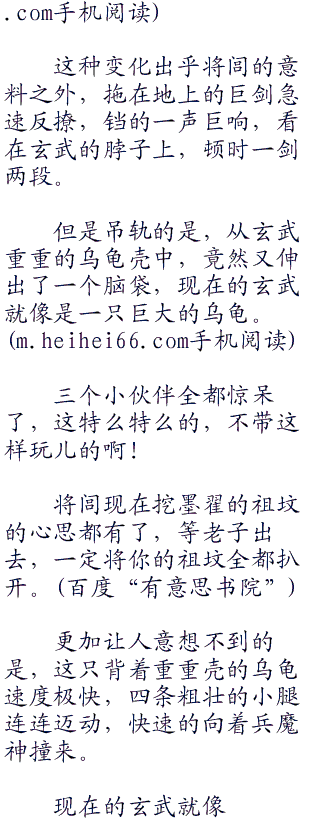 .com手机阅读)
这种变化出乎将闾的意
料之外，拖在地上的巨剑急
速反撩，铛的一声巨响，看
在玄武的脖子上，顿时一剑
两段。
但是吊轨的是，从玄武
重重的乌龟壳中，竟然又伸
出了一个脑袋，现在的玄武
就像是一只巨大的乌龟。
(m.heihei66.com手机阅读)
三个小伙伴全都惊呆
了，这特么特么的，不带这
样玩儿的啊！
将闾现在挖墨翟的祖坟
的心思都有了，等老子出
去，一定将你的祖坟全都扒
开。(百度“有意思书院”)
更加让人意想不到的
是，这只背着重重壳的乌龟
速度极快，四条粗壮的小腿
连连迈动，快速的向着兵魔
神撞来。
现在的玄武就像